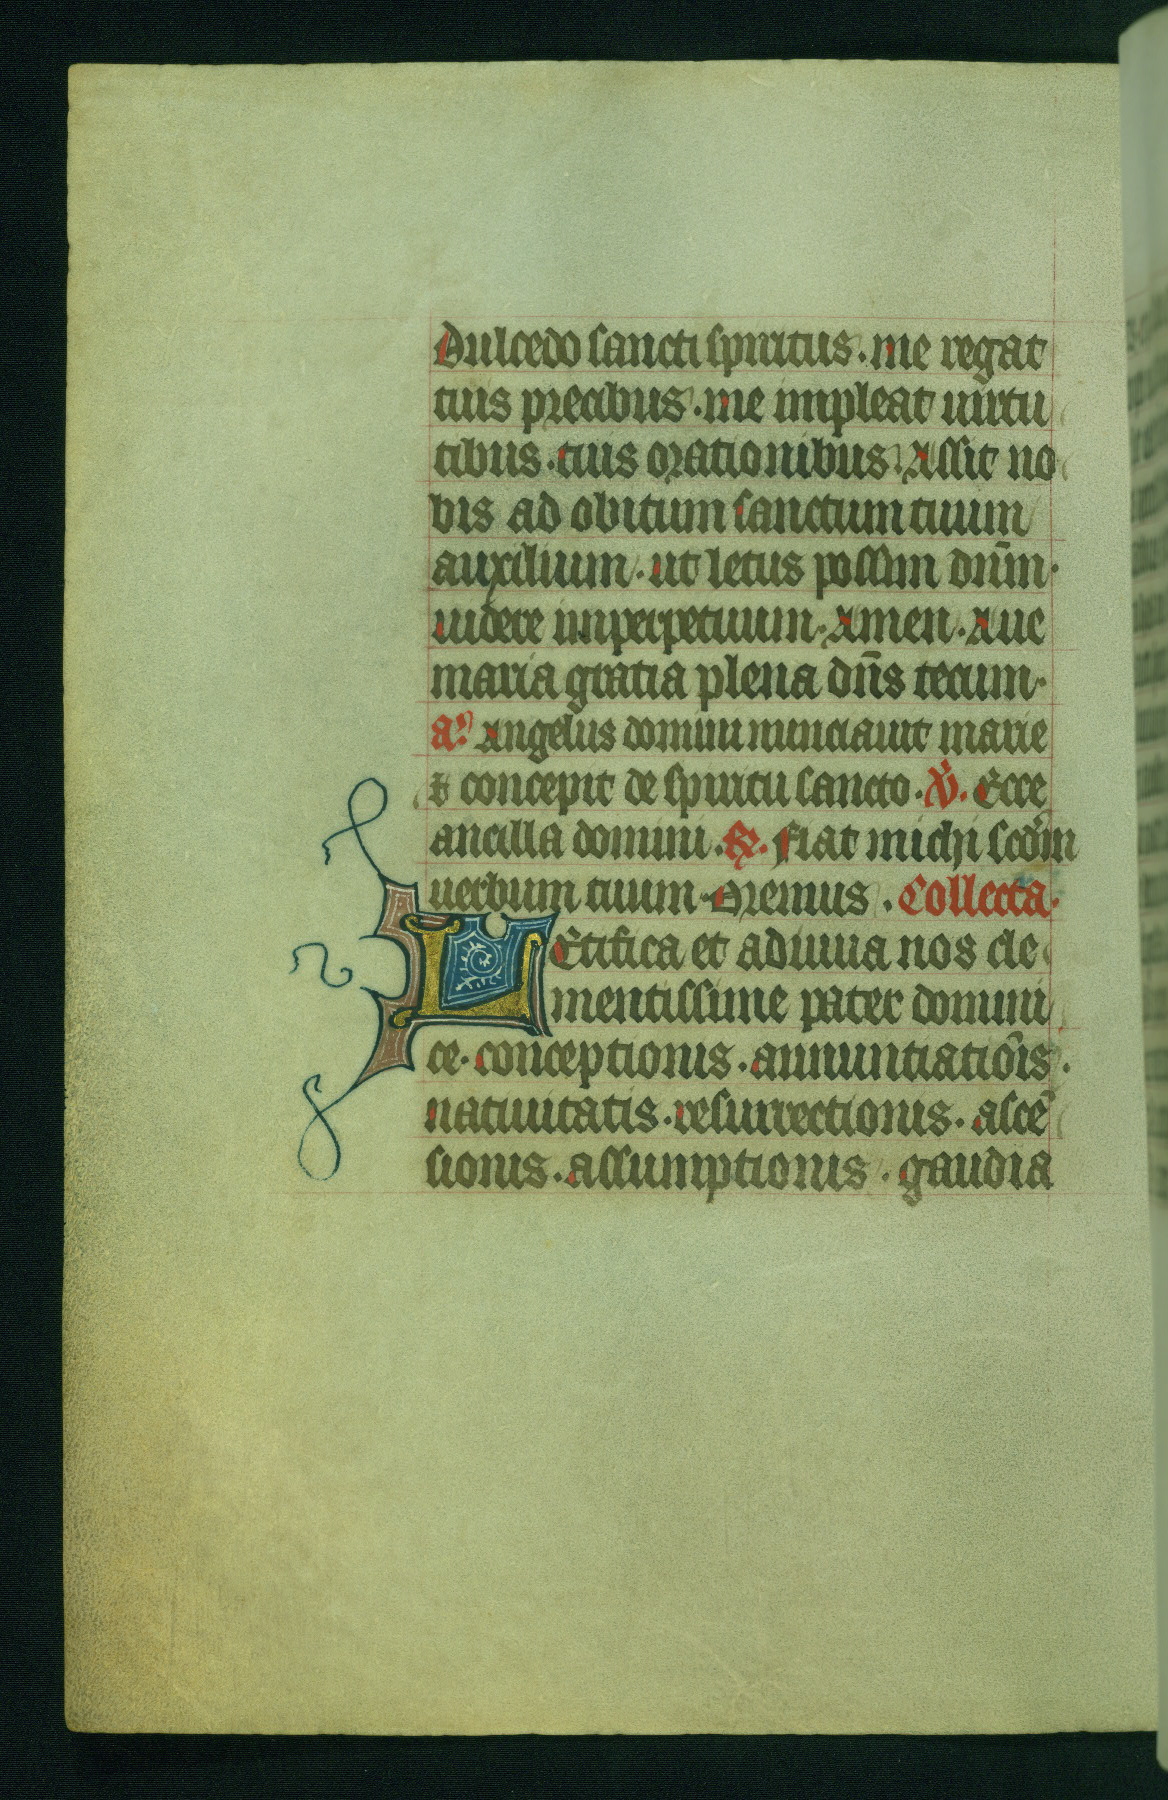 Dulcedo sancti spiritus. me regat
tuis precibus. me impleat uirtu
tibus. tuis orationibus. Assit no
bis ad obitum sanctum tuum
auxilium. ut letus possim dn̄m.
uidere imperpetuum. Amen. Aue
maria gratia plena dn̄s tecum.
a. Angelus domini nunciauit marie
& concepit de spiritu sancto. V̇. Ecce
ancilla domini. R. fiat michi scd̄m
uerbum tuum. Oremus. Collecta.
LEtifica et adiuua nos cle
mentissime pater domini
ce. conceptionis. annuntiatiōis.
natiuitatis. resurrectionis. ascē
sionis. assumptionis. gaudia